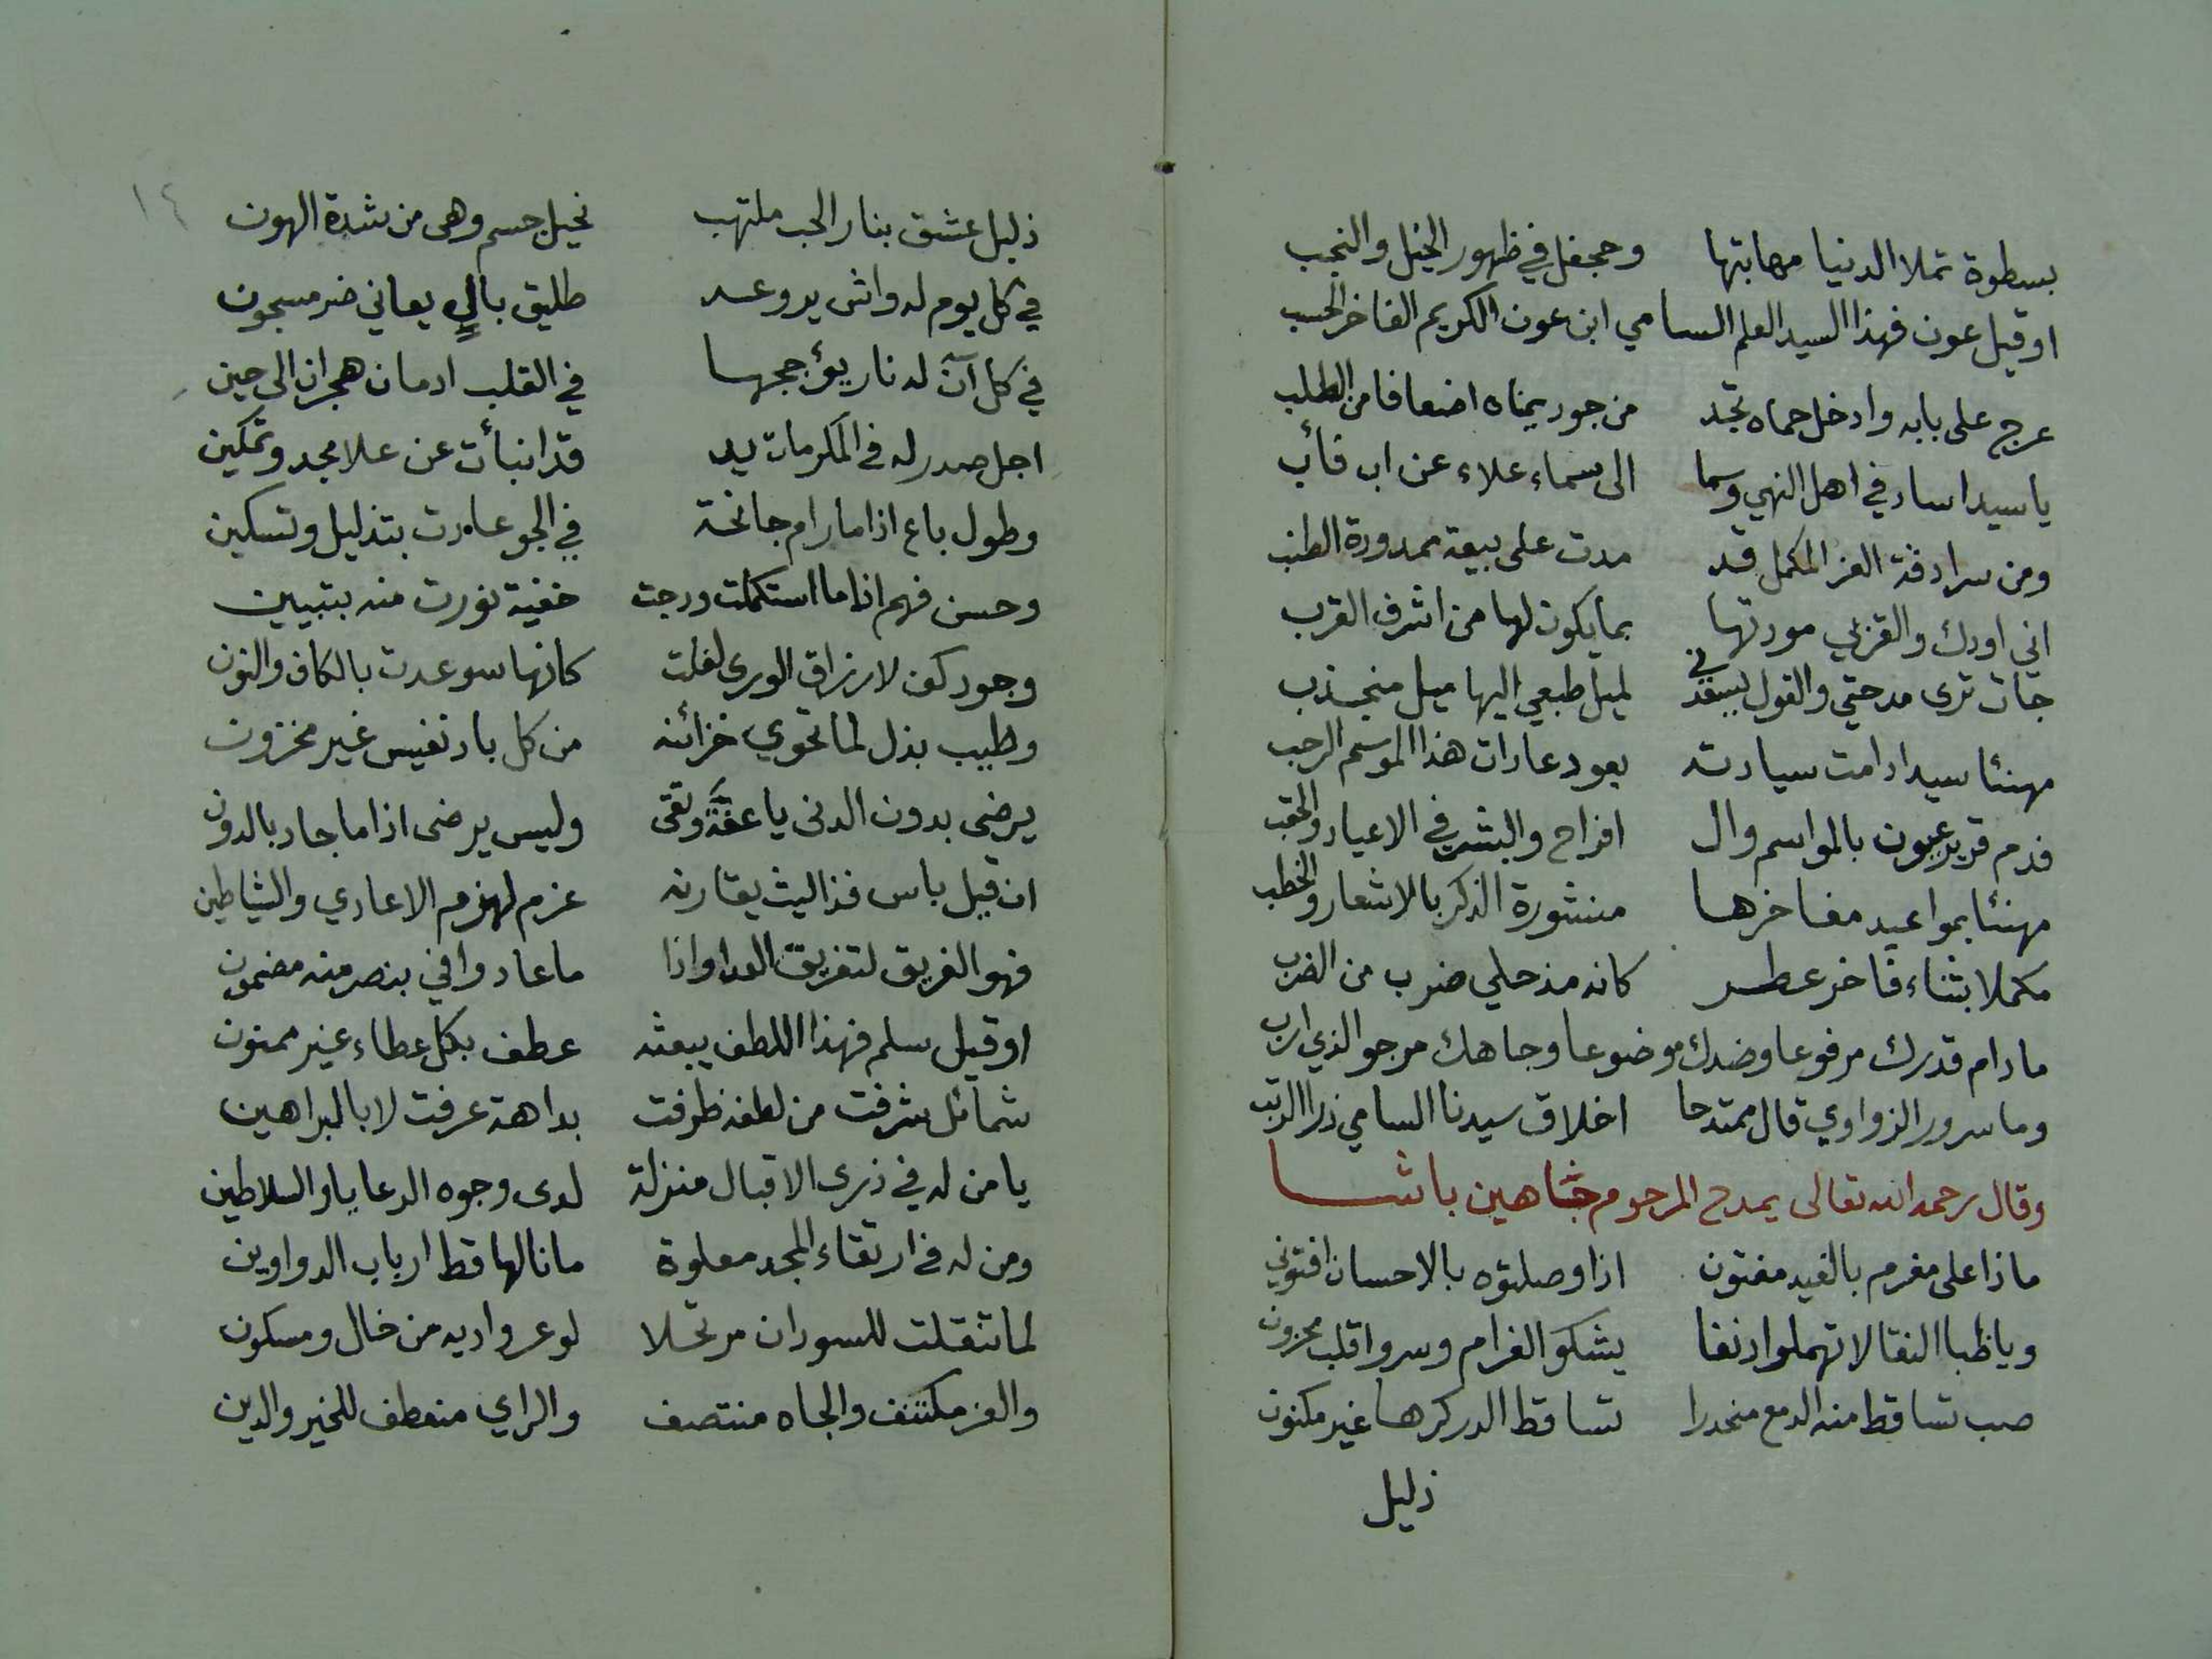 بسطوة تملا الدنيا مهابتها وجحفل في ظهور الخيل والنجب
او قيل عون فهذا السيد العلم السامي ابن عون الكريم الفاخر الحسب
عرج على بابه وادخل حماه تجد من جود يمناه اضعافا من الطلب
يا سيدا ساد في اهل النهي وسما الى سماء علاء عن اب فأب
ومن سرادقة العز المكمل قد مدت على بيعة ممدودة الطنب
اني اودك والقربي مودتها بما يكون لها من اشرف القرب
جات ترى مدحتي والقول لميل طبعي اليها ميل منجذب
مهنئا سيدا دامت سيادته بعود عادات هذا الموسم الرحب
فدم قرير عيون بالمواسم وال افراح والبشر في الاعياد والحقب
مهنئا بمواعيد مفاخرها منشورة الذكر بالاشعار والخطب
مكملا بثناء فاخر عطر كانه مذ حلي ضرب من الضرب
ما دام قدرك مرفوعا وضدك موضوعا وجاهك مرجو الذي ارب
وما سرور الزواوي قال ممتدحا اخلاق سيدنا السامي ذرا الرتب
وقال رحمه الله تعالى يمدح المرحوم شاهين باشا
ماذا على مغرم بالغيد مفتون اذا وصلتوه بالاحسان افتوني
ويا ظبا النقا لا تهملوا دنفا يشكو الغرام وسروا قلب محزون
صب تساقط منه الدمع منحدرا تساقط الدر كرها غير مكنون
ذليل
١٤
ذليل عشق بنار الحب ملتهب نحيل جسم وهى من شدة الهون
في كل يوم له واش يروعه طليق بالٍ يعاني ضر مسجون
في كل آن له نار يؤججها في القلب ادمان هجران الى حين
اجل صدر له في المكرمات يد قد انبأت عن علا مجد وتمكين
وطول باع اذا ما رام جانحة في الجو عادت بتذليل وتسكين
وحسن فهم اذا ما استكملت ودجت خفية نورت منه بتبيين
وجود كف لارزاق الورى لفلت كانها سوعدت بالكاف والنون
وطيب بذل لما تحوي خزائنه من كل باد نفيس غير مخزون
يرضى بدون الدنى يا عفة وتقى وليس يرضى اذا ما جاد بالدون
ان قيل باس فذا ليث يقارنه عزم لهزم الاعادي والشياطين
فهو الفريق لتفريق العدا واذا ما عاد وافي بنصر منه مضمون
او قيل سلم فهذا اللطف يبعثه عطف بكل عطاء غير ممنون
شمائل شرفت من لطفه ظرفت بداهة عرفت لا بالبراهين
يا من له في ذرى الاقبال منزلة لدى وجوه الرعايا والسلاطين
ومن له في ارتقاء المجد معلوة ما نالها قط ارباب الدواوين
لما تنقلت للسودان مرتحلا لوعر واديه من خال ومسكون
والعز مكتنف والجاه منتصف والراي منعطف للخير والدين